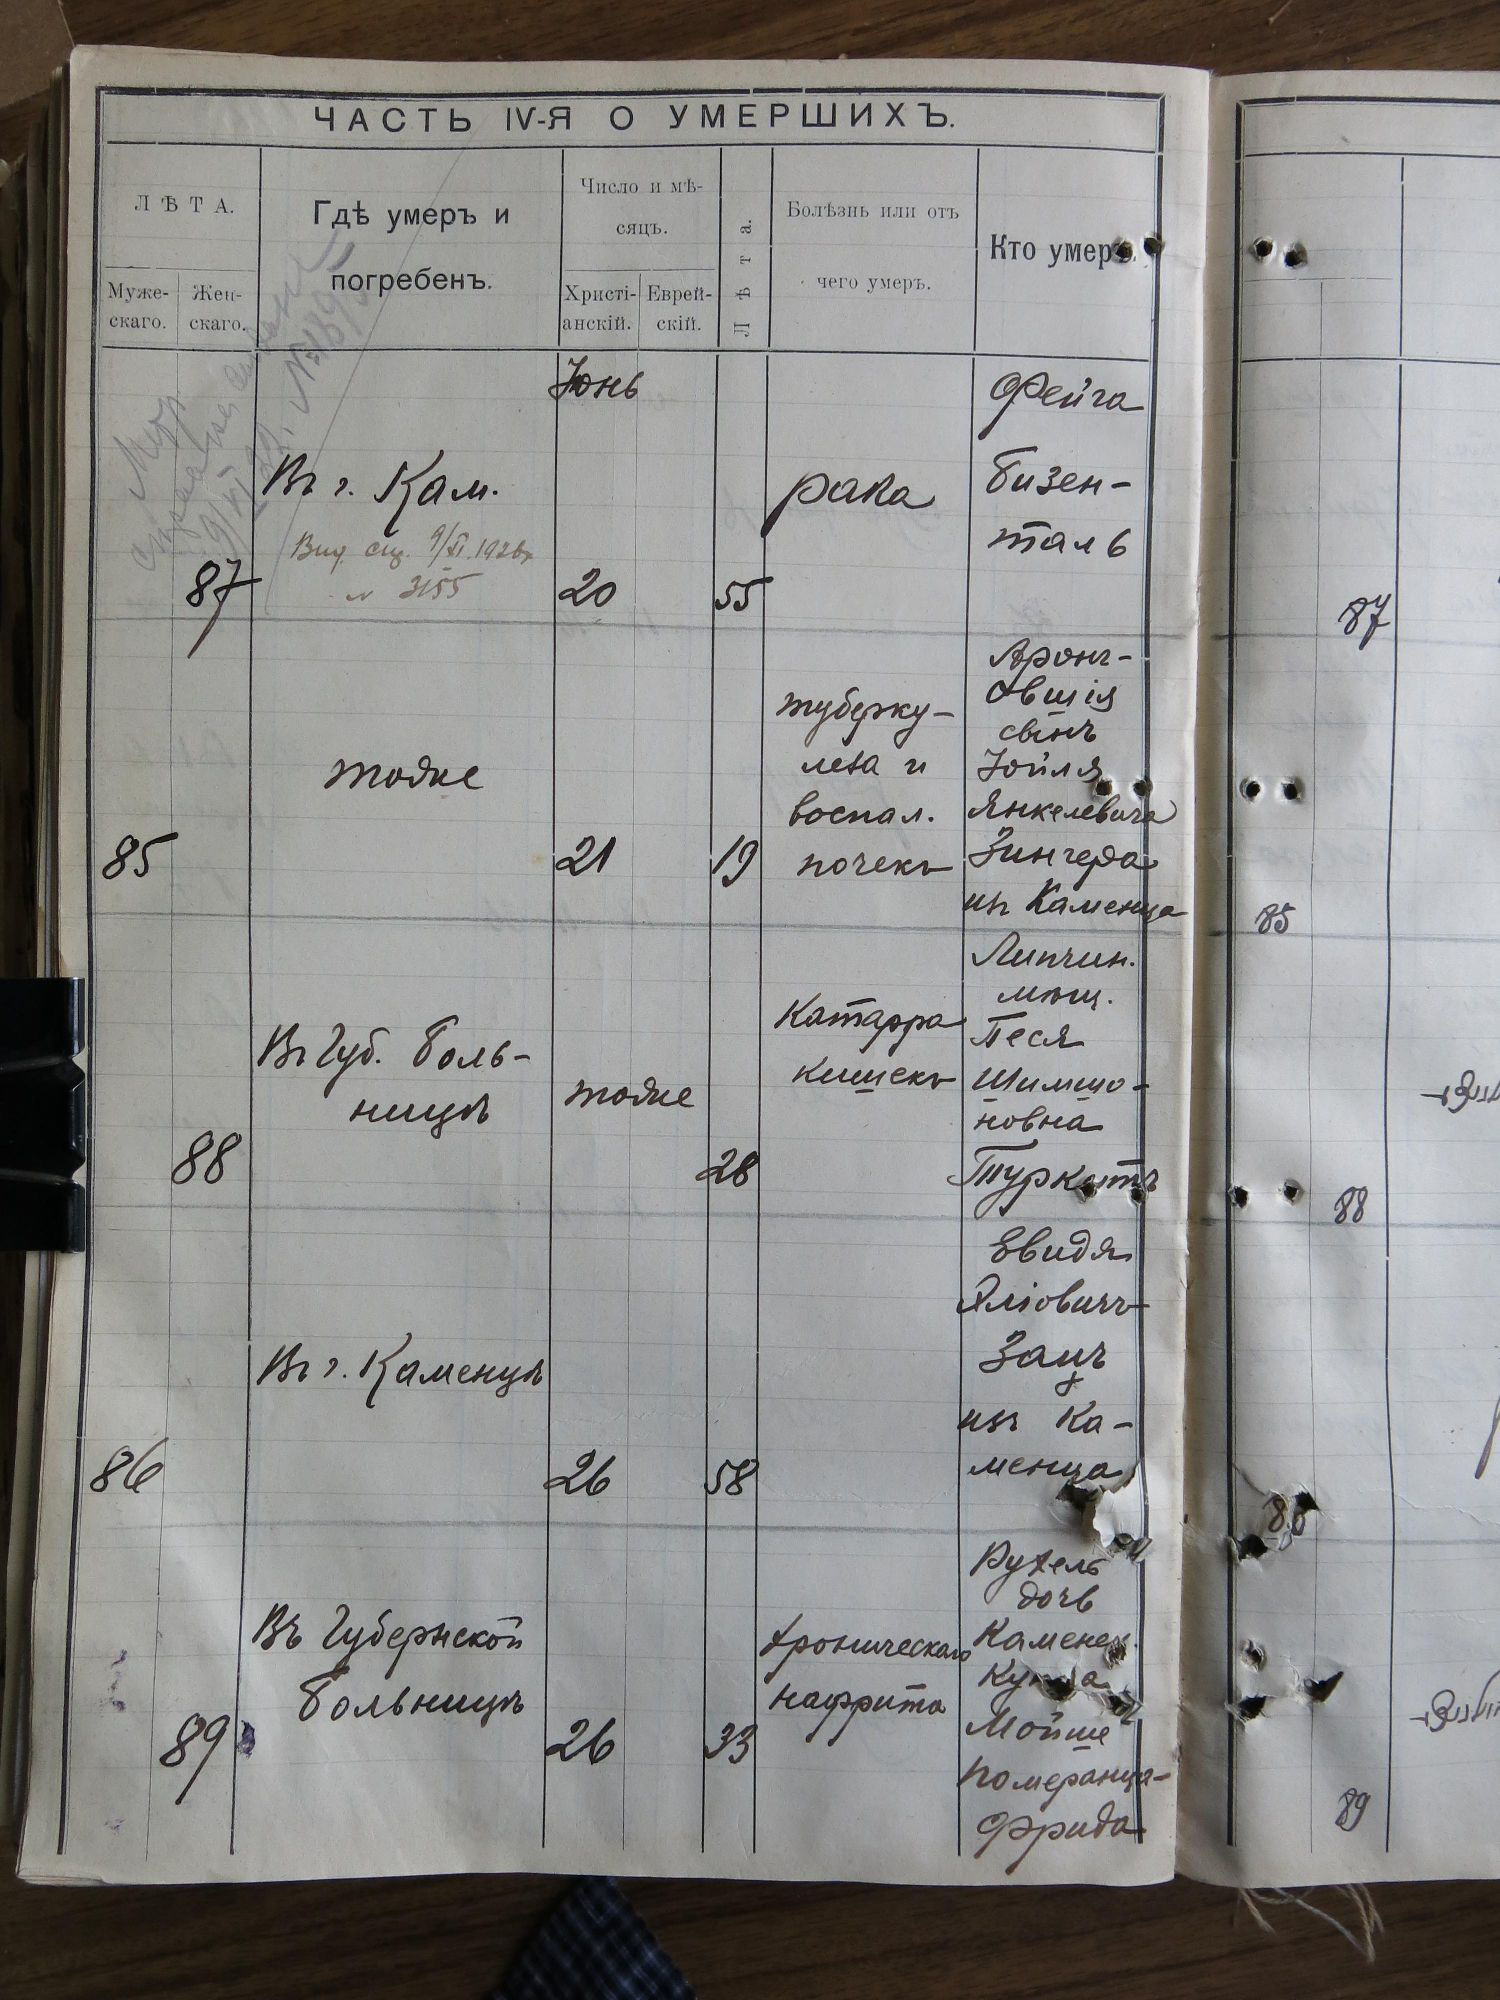 ЧАСТЬ IV-Я О УМЕРШИХЪ.
ЛѢТА.
Муже-
скаго.
Жен-
скаго.
Гдѣ умеръ и
погребенъ.
Число и мѣ-
сяцъ.
Христі-
анскій.
Еврей-
скій.
Лѣта.
Болѣзнь или отъ
чего умеръ.
Кто умеръ.
Іюнь
87
Въ г. Кам.
9/XI 1926
N 3155
20
55
рака
Фейга
Бизен-
таль
87
85
тоже
21
19
туберку-
леза и
воспал.
почекъ
Аронъ-
сынъ
Іойля
Янкелевича
Зингера
изъ Каменца
85
88
Въ Губ. Боль-
ницѣ
тоже
28
Катарра
кишекъ
мѣщ.
Песя
Шимшо-
новна
88
86
Въ г. Каменцѣ
26
58
Овидя
Заицъ
изъ Ка-
менца
86
89
Въ Губернской
Больницѣ
26
33
хроническаго
нафрита
Рухель
дочь
Каменец.
Купца
Мойше
Померанца-
Фрида
89